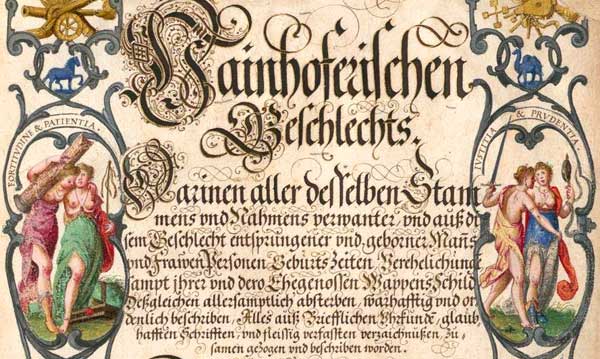 Hainhoferischen
Geschlechts.
FORTITUDINE & PATIENTIA.
IVSTITIA & PRVDENTIA.
Darinen aller desselben Stam̅
mens vnd Nahmens verwanter, vnd auß di
sem Geschlecht entsprüngener vnd geborner Mans
vnd Frawen Personen Geburts Zeiten, Verehelichung
sampt jhrer vnd dero Ehegenossen Wappens Schild
Deßgleichen allersamptlich absterben, warhafftig vnd or
denlich beschriben, Alles auß Briefflichen Vhrkunde, glaub
hafften Schrifften, vnd fleissig verfassten verzaichnußen, Zu
samen gezogen vnd beschriben worden.